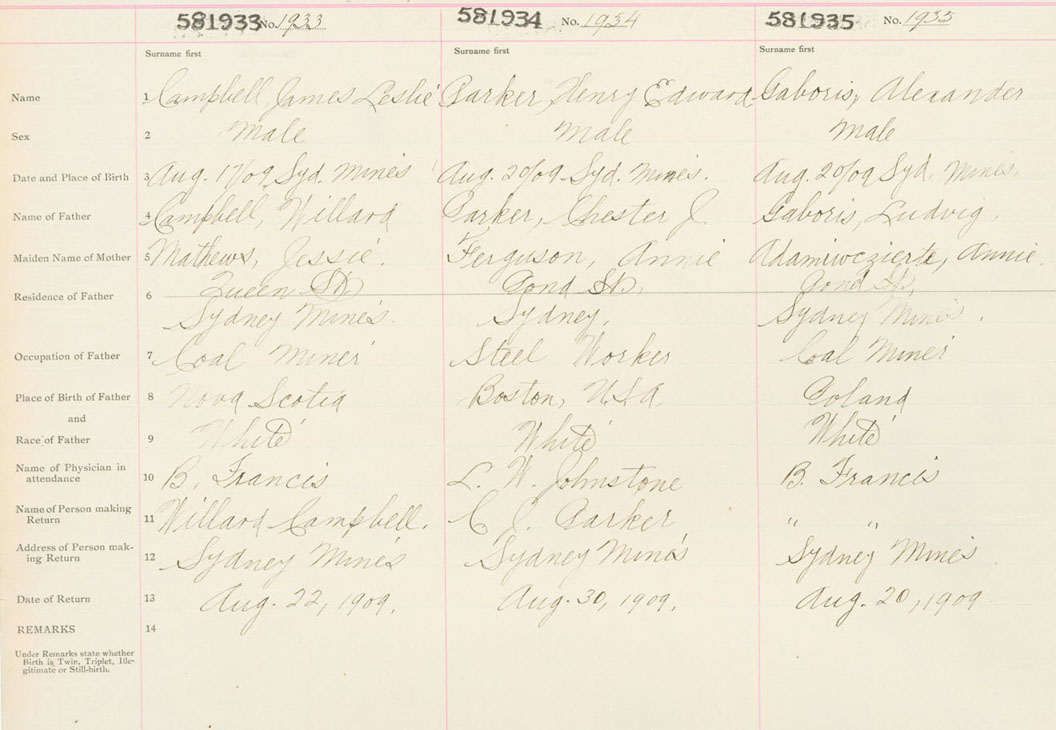 581933 No. 1933 581934 No. 1934 581935 No. 1935
Surname first Surname first Surname first
Name 1 Campbell, James Leslie Parker, Henry Edward Gaboris, Alexander
Sex 2 Male Male Male
Date and Place of Birth 3 Aug. 17/09 Syd. Mines Aug. 20/09 Syd. Mines. Aug. 20/09 Syd. Mines.
Name of Father 4 Campbell, Willard Parker, Chester J. Gaboris, Ludvig.
Maiden Name of Mother 5 Mathews, Jessie. Ferguson, Annie Annie.
Residence of Father 6 Queen St. Pond St. Pond St.
Sydney Mines. Sydney. Sydney Mines.
Occupation of Father 7 Coal Miner Steel Worker Coal Miner
Place of Birth of Father 8 Nova Scotia Boston, USA. Poland
and
Race of Father 9 White White White
Name of Physician in
attendance 10 B. Francis L. W. Johnstone B. Francis
Name of Person making
Return 11 Willard Campbell. C J. Parker " "
Address of Person mak-
ing Return 12 Sydney Mines Sydney Mines Sydney Mines
Date of Return 13 Aug. 22, 1909. Aug. 30, 1909. Aug. 20, 1909
REMARKS 14
Under Remarks state whether
Birth is Twin, Triplet, Ille-
gitimate or Still-birth.